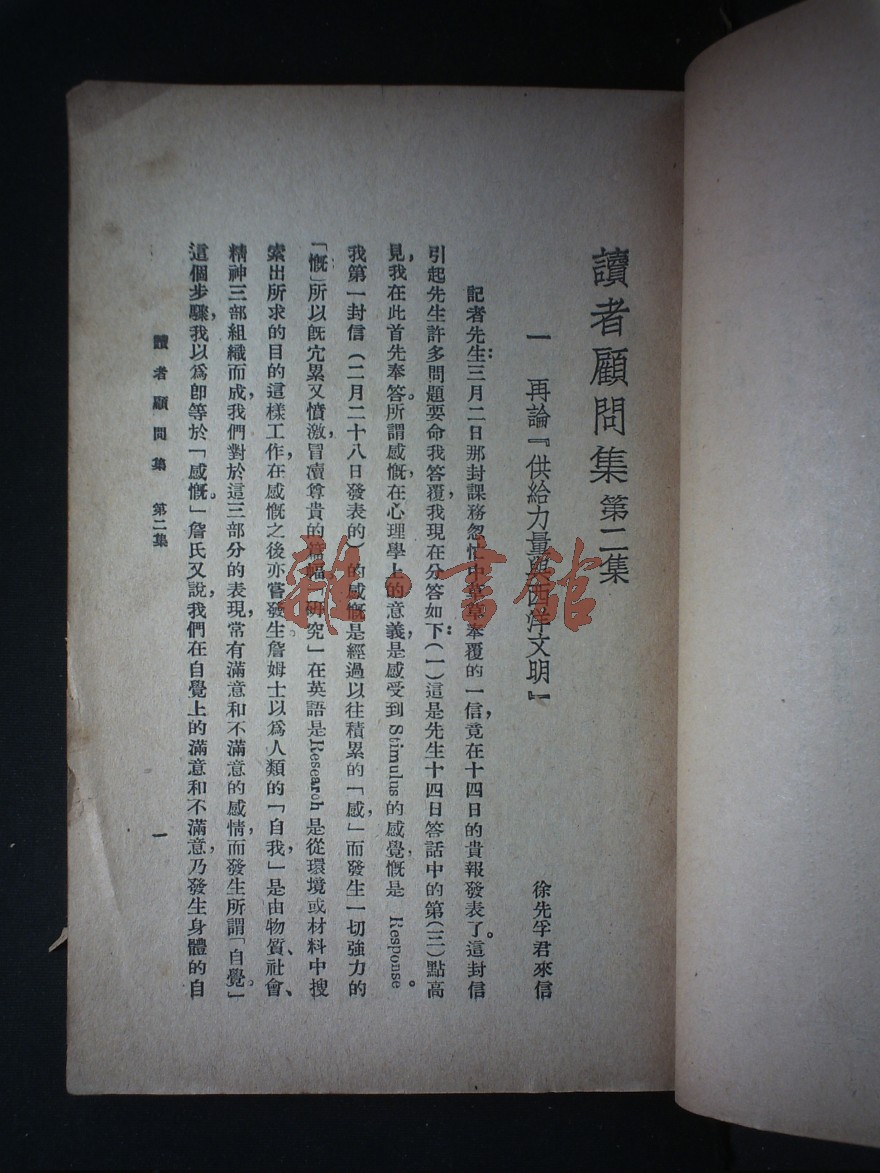 讀者顧問集 第二集
一 再論『供給力量與西洋文明』
徐先孚君來信
記者先生:三月二日那封課務忽忙中草草奉覆的一信,竟在十四日的貴報發表了。這封信
引起先生許多問題要命我答覆,我現在分答如下:(一)這是先生十四日答話中的第(三)點高
見,我在此首先奉答。所謂感慨,在心理學上的意義,是感受到Stimulus的感覺慨是 Response。
我第一封信(二月二十八日發表的)的感慨是經過以往積累的「感」,而發生一切強力的
「慨」所以旣宂累又憤激,冒瀆尊貴的篇幅,「研究」在英語是Research 是從環境或材料中搜
索出所求的目的這樣工作,在感慨之後亦嘗發生。詹姆士以爲人類的「自我」,是由物質、社會、
精神三部組織而成,我們對於這三部分的表現,常有滿意和不滿意的感情,而發生所謂「自覺」。
這個步驟,我以爲卽等於「感慨」。詹氏又說,我們在自覺上的滿意和不滿意,乃發生身體的自
讀者顧問集 第二集
一
雜·書館